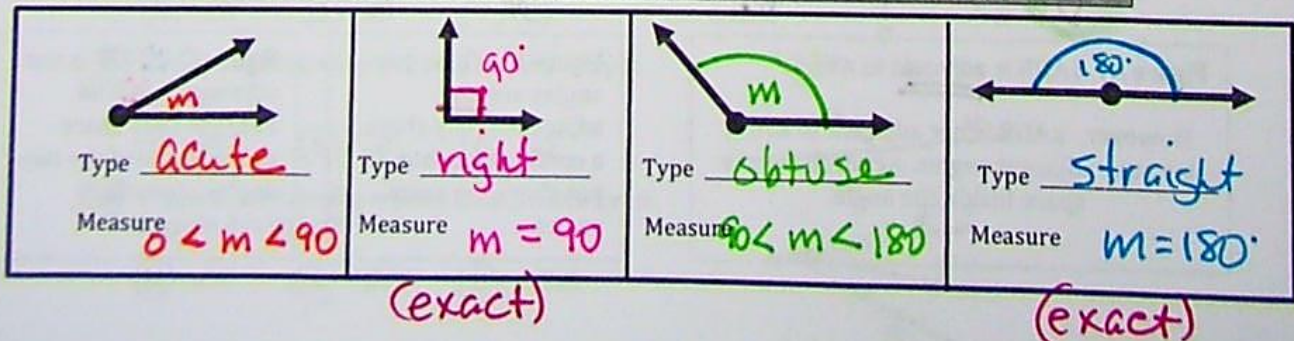 m
Type acute
Measure 0 < m < 90
90°
Type right
Measure m = 90
(exact)
m
Type obtuse
Measure 90 < m < 180
180°
Type straight
Measure m = 180°
(exact)